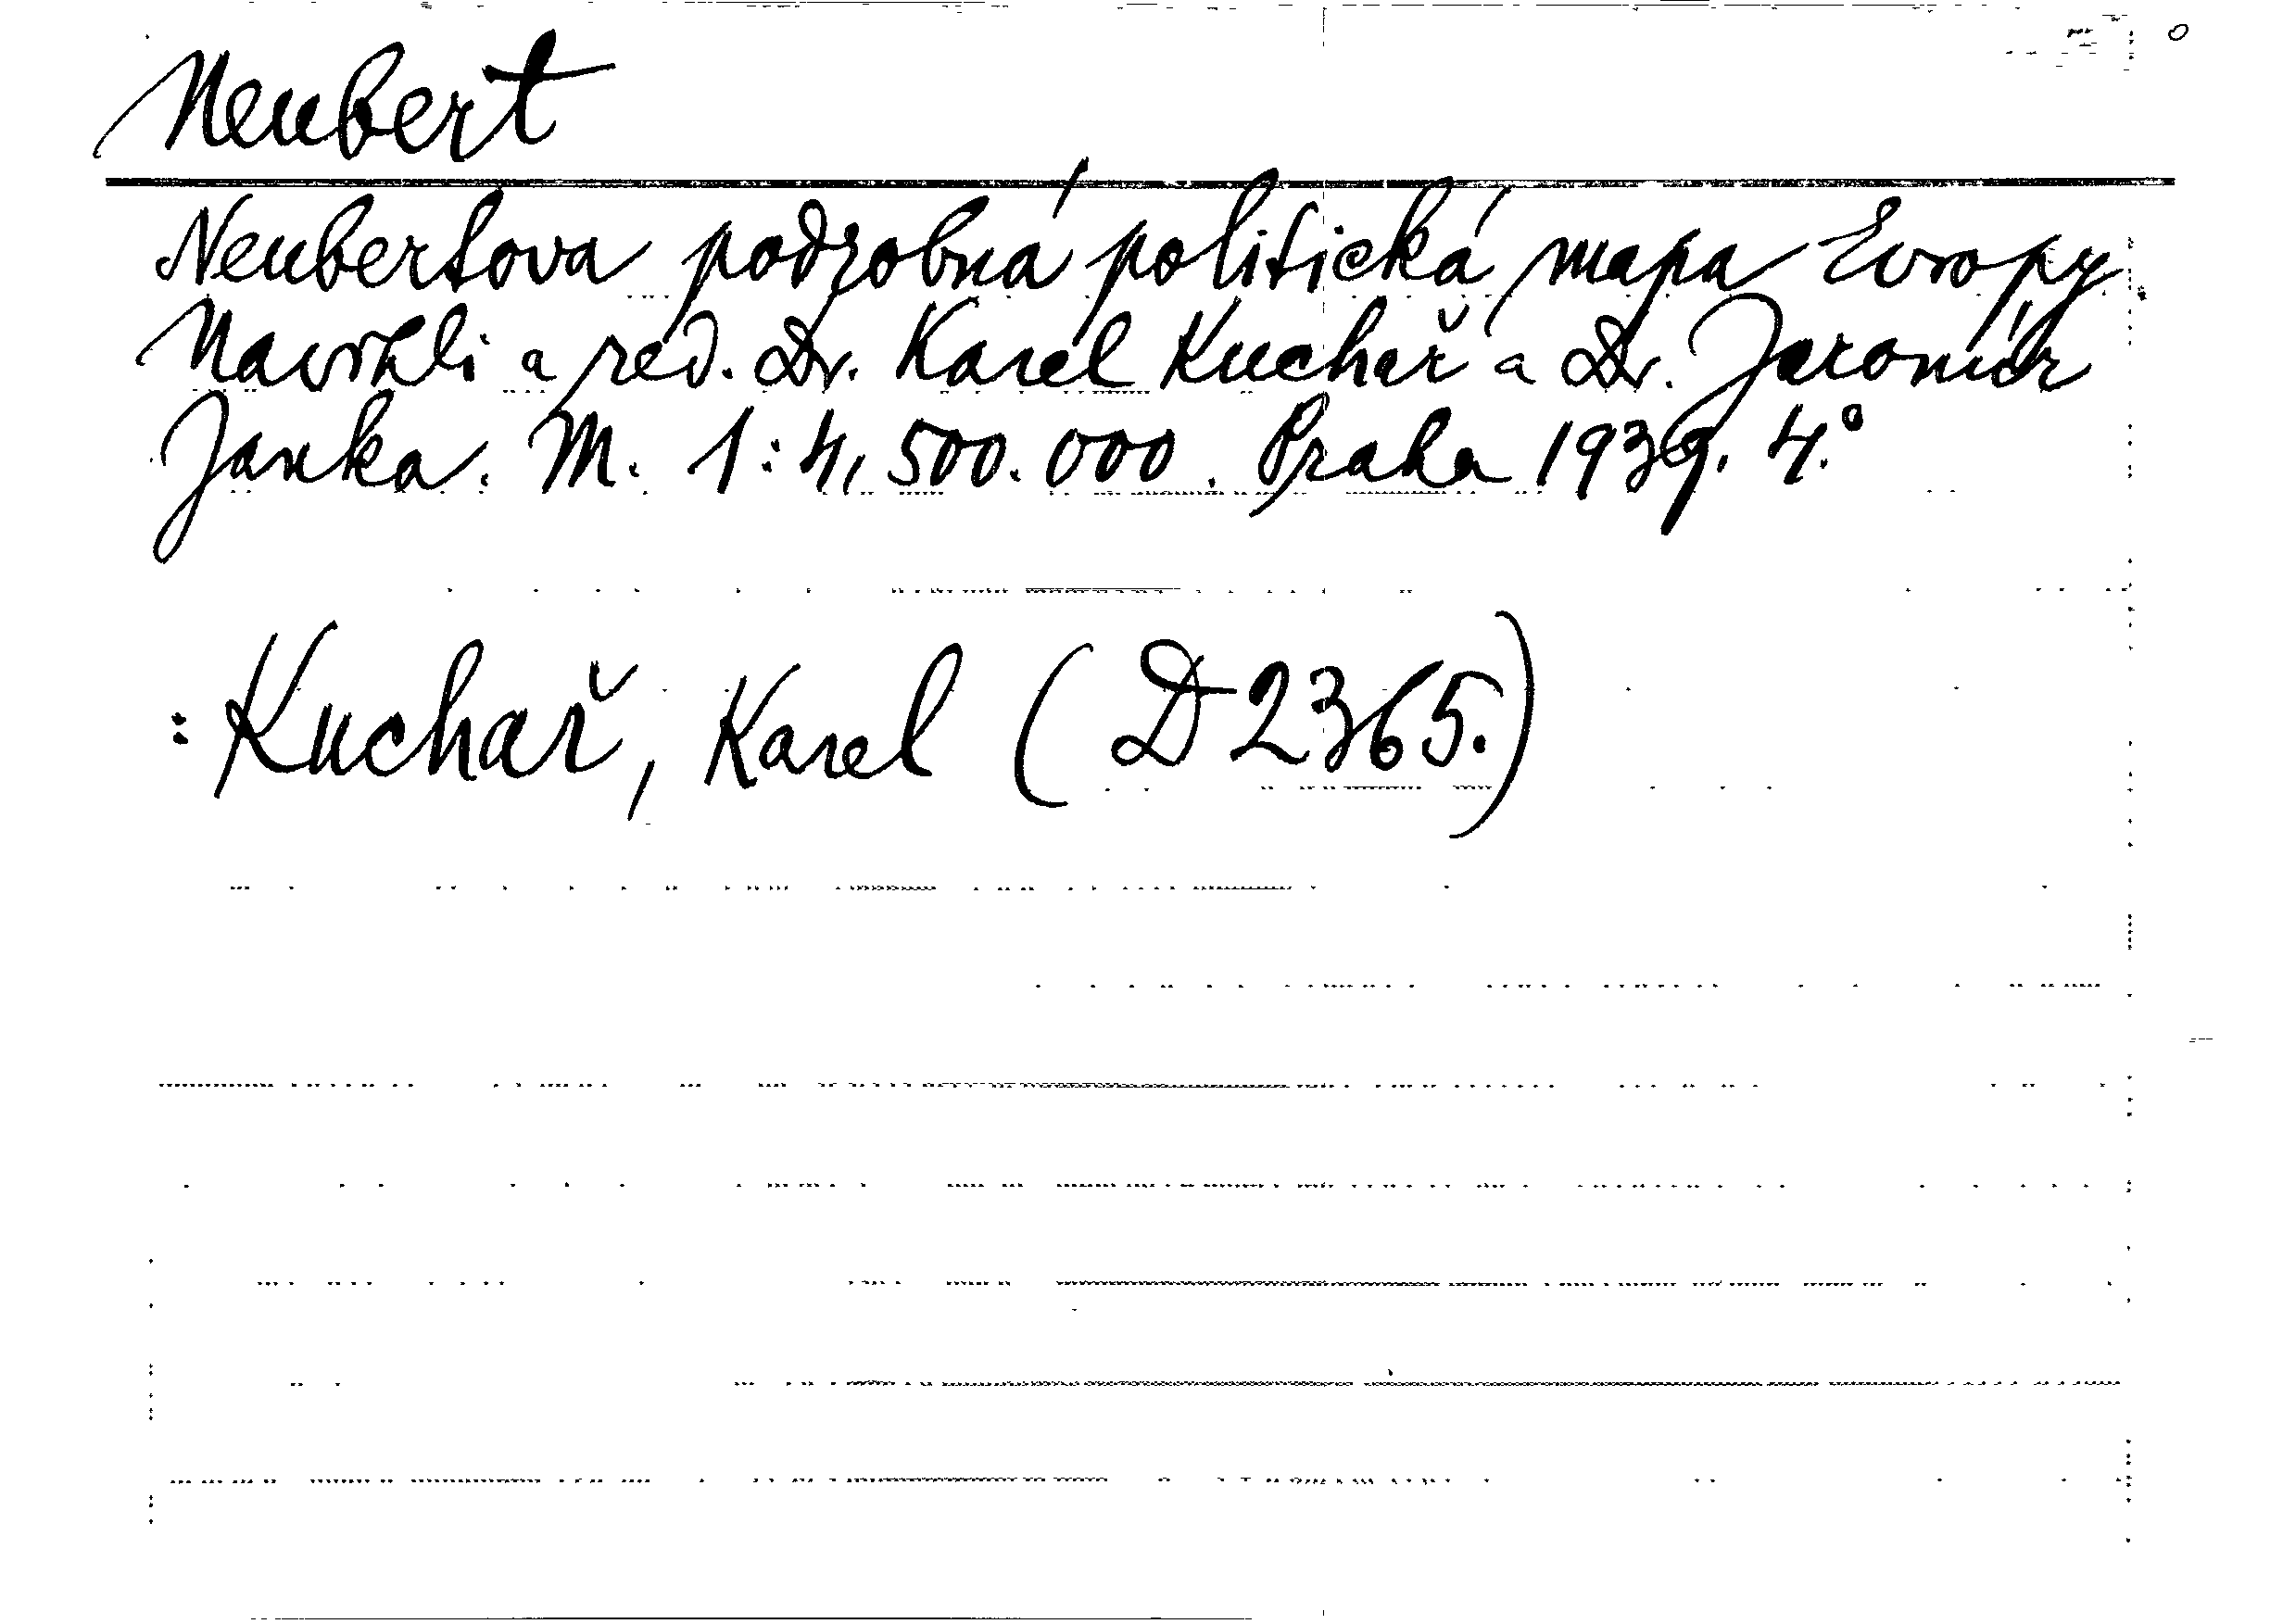 Neubert
Neubertova podrobná politická mapa Evropy.
Navrhli a red. Dr. Karel Kuchař a Dr. Jaromír
Janka. M. 1:4,500.000. Praha 1939. 4.°
: Kuchař, Karel (D 2365.)